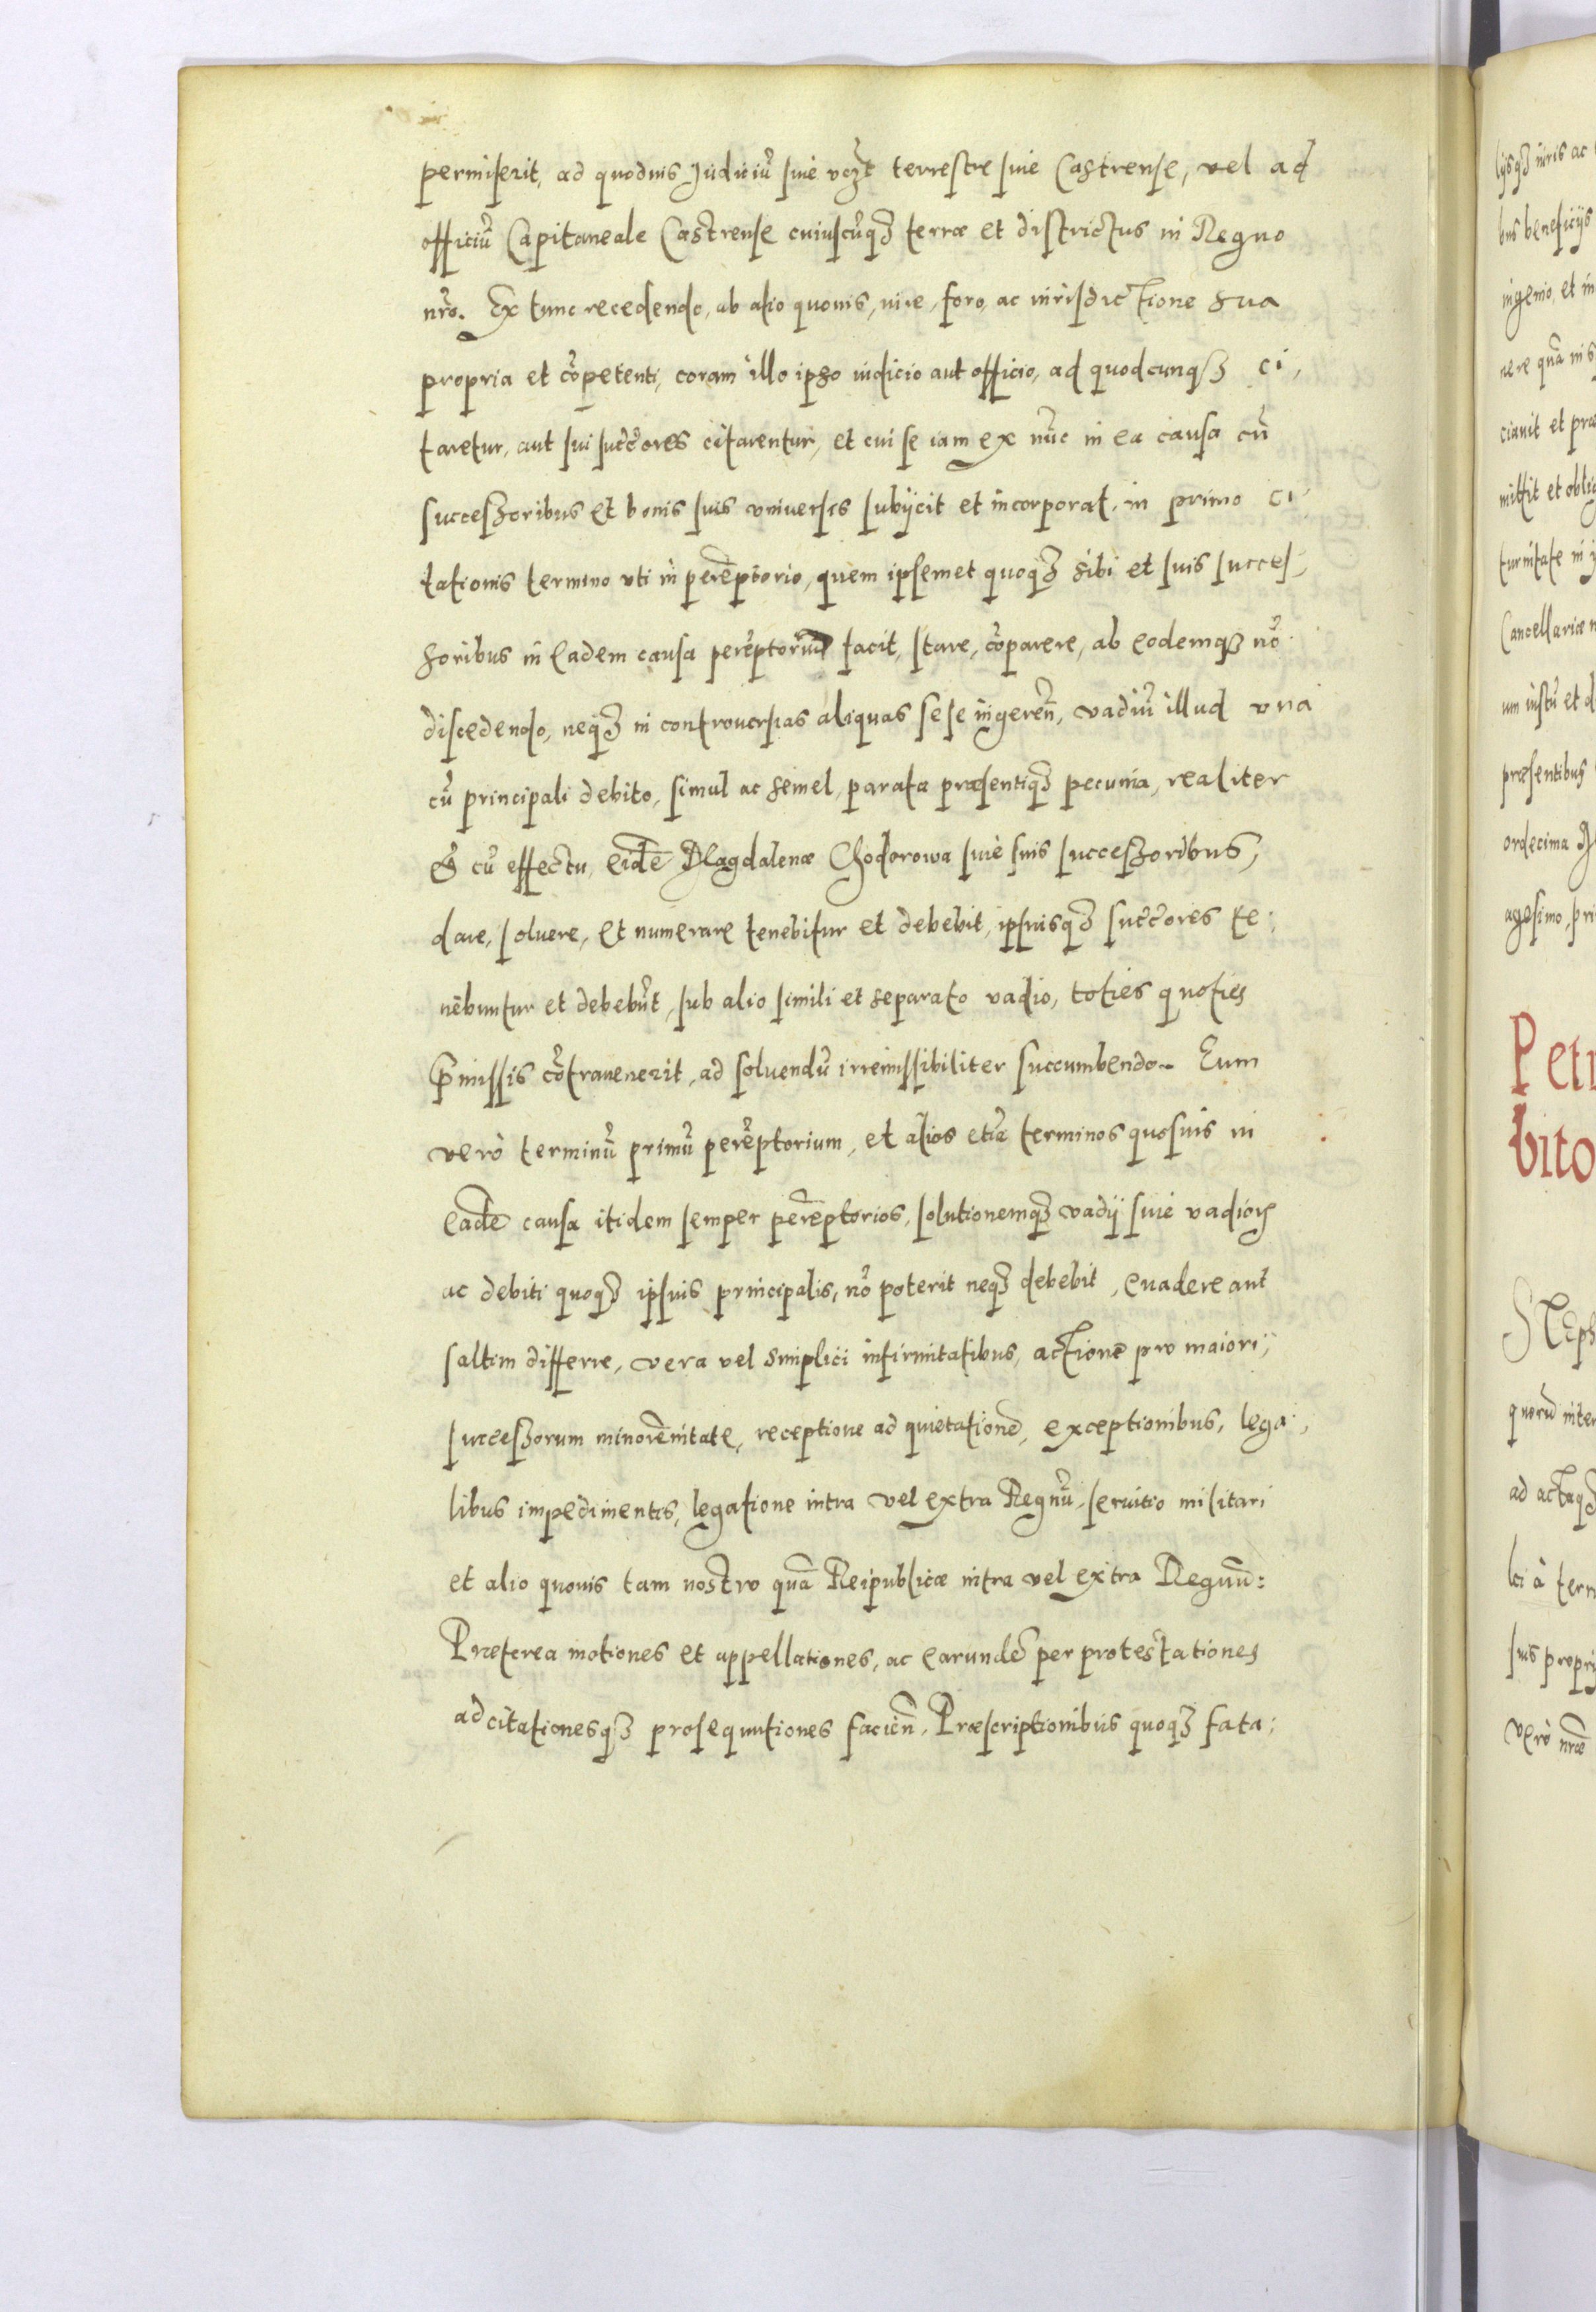 permiserit, ad quoduis Iudiciũ siue terrestre siue Castrense, vel ad
officiũ Capitaneale Castrense cuiuscũq3 terræ et districtus in Regno
nrõ. Ex tunc recedendo, ab alio quouis, iure, foro, ac iurisdictione sua
propria et cõpetenti, coram illo ipso iudicio aut officio, ad quodcunq3 ci,
taretur, aut sui succ̃ores citarentur, et cui se iam ex nũc in ea causa cũ
successoribus et bonis suis vniuersis subijcit et incorporat, in primo ci,
tationis termino vti in perẽptorio, quem ipsemet quoq3 sibi et suis succes,
soribus in Eadem causa perẽptoriũ facit, stare, cõparere, ab eodemq3 nõ
discedendo, neq3 in controuersias aliquas sese ingereñ, vadiũ illud vna
cũ principali debito, simul ac semel, parata præsentiq3 pecunia, realiter
& cũ effectu, eidẽ Magdalenæ Chodorowa siue suis successoribus,
dare, soluere, et numerare tenebitur et debebit, ipsiusq3 succ̃ores te,
nẽbuntur et debebũt, sub alio simili et separato vadio, toties quoties
p̃missis cõtrauenerit, ad soluendũ irremissibiliter succumbendo. Eum
verò terminũ primũ perẽptorium, et alios etiã terminos quosuis in
Eadẽ causa itidem semper perẽptorios, solutionemq3 vadij siue vadioꝝ
ac debiti quoq3 ipsius principalis, nõ poterit neq3 debebit, euadere aut
saltim differre, vera vel simplici infirmitatibus, actione pro maiori,
successorum minorẽnitate, receptione ad quietationẽ, exceptionibus, lega,
libus impedimentis, legatione intra vel extra Regnũ, seruitio militari
et alio quouis tam nostro quã Reipublicæ intra vel extra Regnũ:
Præterea motiones et appellationes, ac earundẽ per protestationes
adcitationesq3 prosequutiones facieñ, Præscriptionibus quoq3 fata,
ingenio, et in
cianit et præ
Cancellariæ
præsentibus
ordecima
agesimo, pri
Petr
bito
Steph
ad actaq3
suis propri
Verò nrãe